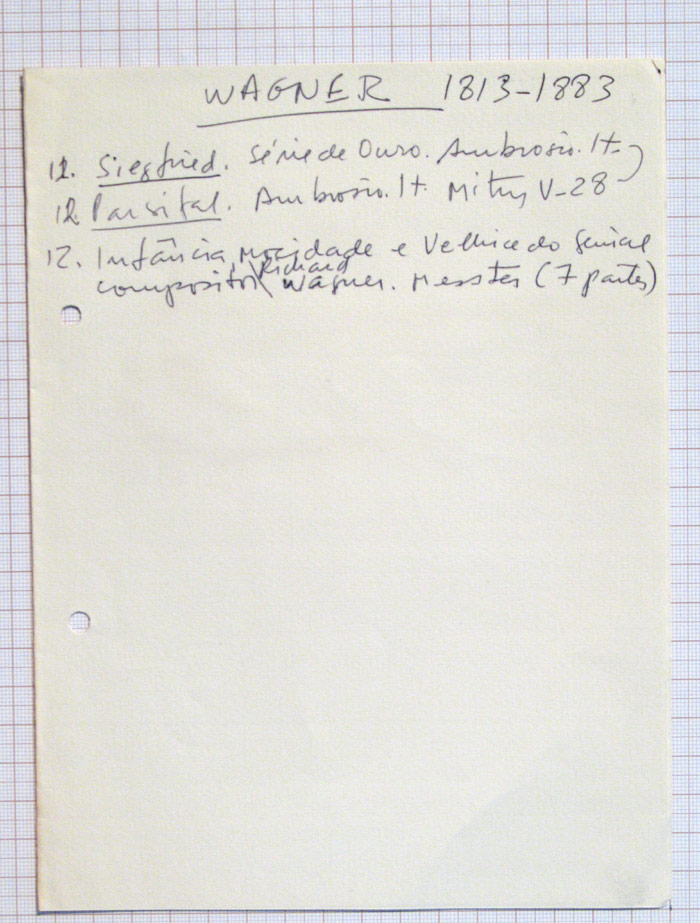 WAGNER 1813-1883
12. Siegfried. Série de Ouro. Ambrosio. It.
12 Parsifal. Ambrosio. It. Mitry V-28
12. Infância, mocidade e Velhice do genial
compositor Richard Wagner. Messter (7 partes)